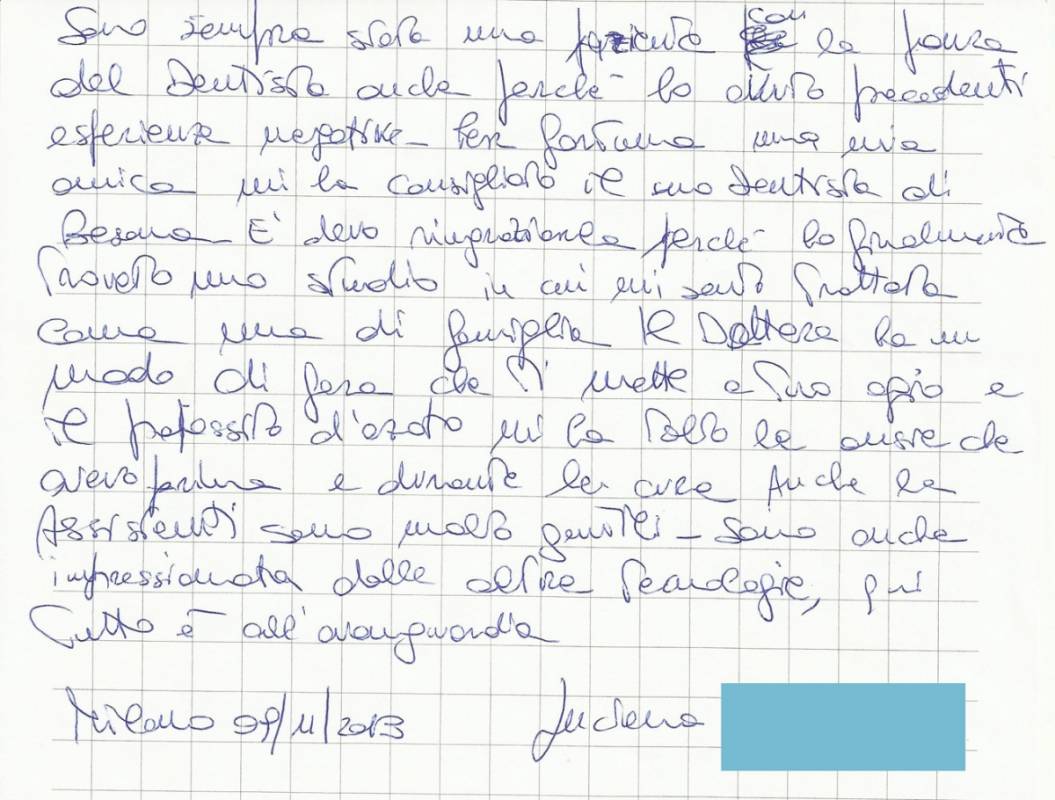 Sono sempre stata una paziente con la paura
del Dentista anche perché ho avuto precedenti
esperienze negative – Per fortuna una mia
amica mi ha consigliato il suo Dentista di
Besana – E' devo ringraziarla perché ho finalmente
trovato uno studio in cui mi sento trattata
come una di famiglia Il Dottore ha un
modo di fare che ti mette a tuo agio e
il protossido d'azoto mi ha tolto le ansie che
avevo prima e durante le cure Anche le
Assistenti sono molto gentili – Sono anche
impressionata dalle altre tecnologie, qui
tutto è all'avanguardia
Milano 09/11/2013 Luciana